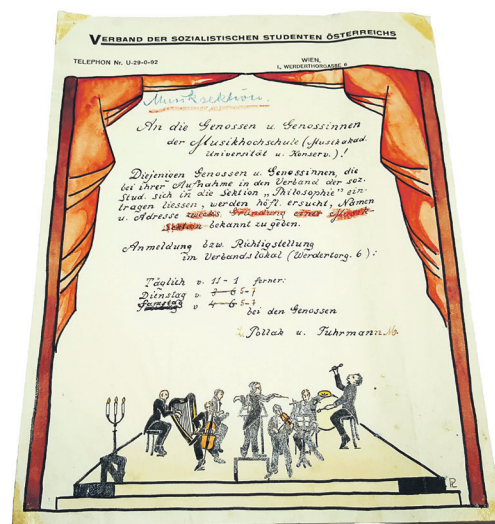 VERBAND DER SOZIALISTISCHEN STUDENTEN ÖSTERREICHS
TELEPHON Nr. U-29-0-92
WIEN,
I., WERDERTHORGASSE 6
Musiksektion.
An die Genossen u. Genossinnen
der Musikhochschule (Musikakad.
Universität u. Konserv.)!
Diejenigen Genossen u. Genossinnen, die
bei ihrer Aufnahme in den Verband der soz.
Stud. sich in die Sektion „Philosophie" ein-
tragen liessen, werden höfl. ersucht, Namen
u. Adresse zwecks Gründung einer Musik-
Sektion bekannt zu geben.
Anmeldung bzw. Richtigstellung
im Verbandslokal (Werdertorg. 6):
Täglich v. 11-1 ferner:
Dienstag v. 3-6 5-7
Samstag v 4-6 5-7
bei den Genossen
Pollak u. Fuhrmann